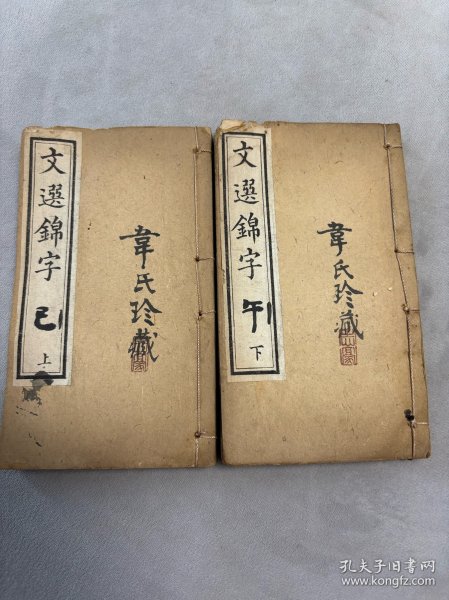 文選錦字
巳
上
韋氏珍藏
文選錦字
午
下
韋氏珍藏
孔夫子旧书网
www.kongfz.com